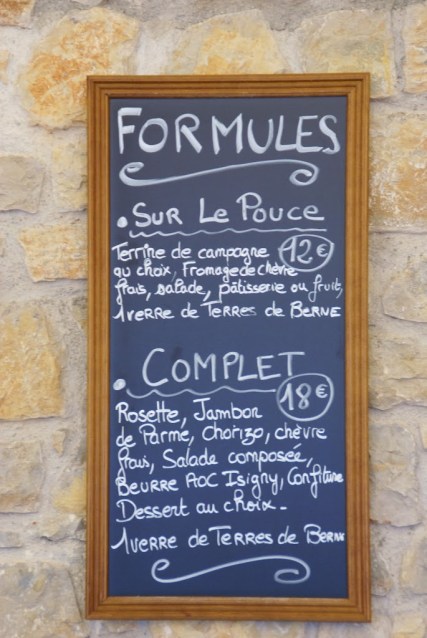 FORMULES
• SUR LE POUCE
Terrine de campagne 12€
au choix, Fromage de chèvre
frais, salade, pâtisserie ou fruit,
1 verre de TERRES de BERNE
• COMPLET
18€
Rosette, Jambon
de Parme, Chorizo, chèvre
frais, Salade composée,
BEURRE AOC Isigny, Confiture
Dessert au choix.
1 verre de TERRES de BERNE